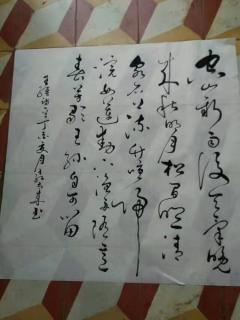 空山新雨後天氣晚
来秋明月松間照清
泉石上流竹喧歸
浣女蓮動下漁舟随意
春芳歇王孫自可留
王維詩丁酉夏月書